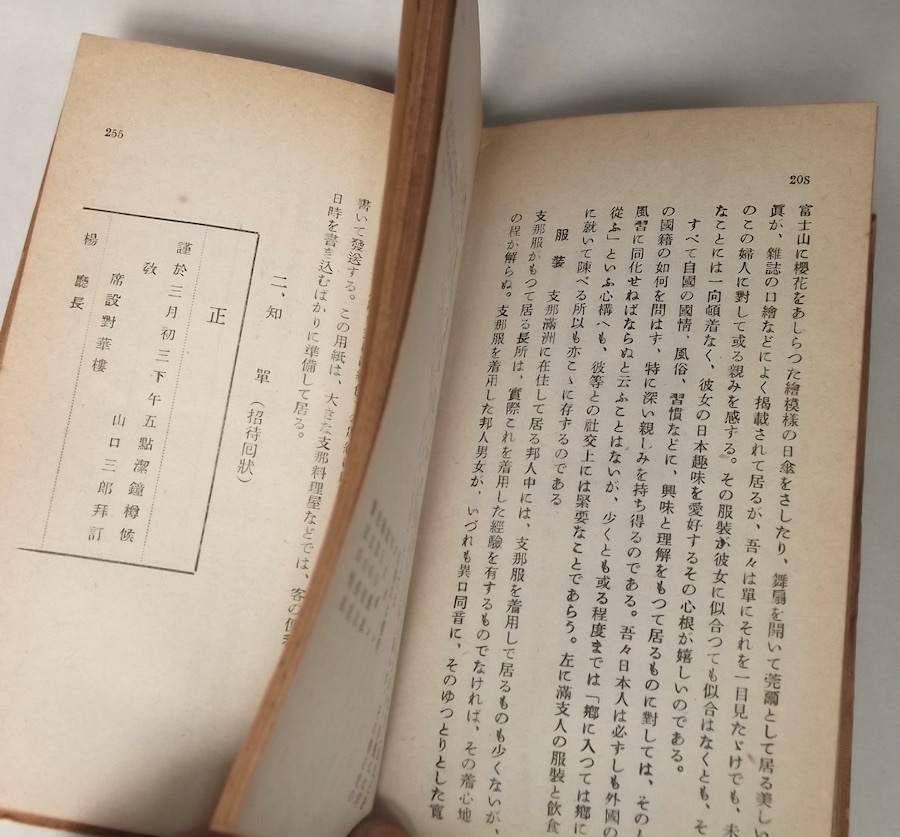 208
富士山に櫻花をあしらつた繪模樣の日傘をさしたり、舞扇を開いて莞爾として居る美しい
眞が、雜誌の口繪などによく揭載されて居るが、吾々は單にそれを一目見たゞけでも、未
のこの婦人に對して或る親みを感ずる。その服裝が彼女に似合つても似合はなくとも、そ
なことには一向頓着なく、彼女の日本趣味を愛好するその心根が嬉しいのである。
すべて自國の國情、風俗、習慣などに、興味と理解をもつて居るものに對しては、その人
の國籍の如何を問はず、特に深い親しみを持ち得るのである。吾々日本人は必ずしも外國の
風習に同化せねばならぬと云ふことはないが、少くとも或る程度までは「鄕に入つては鄕に
從ふ」といふ心構へも、彼等との社交上には緊要なことであらう。左に滿支人の服裝と飮食
に就いて陳べる所以も亦こゝに存するのである
服裝 支那滿洲に在住して居る邦人中には、支那服を着用して居るものも少くないが、
支那服がもつて居る長所は、實際これを着用した經驗を有するものでなければ、その着心地
の程が解らぬ。支那服を着用した邦人男女が、いづれも異口同音に、そのゆつとりとした寬
255
書いて發送する。この用紙は、大きな支那料理屋などでは、客の
日時を書き込むばかりに準備して居る。
二、知單(招待囘狀)
正
謹於三月初三下午五點潔鐘樽候
敎
席設對華樓 山口三郎拜訂
楊廳長